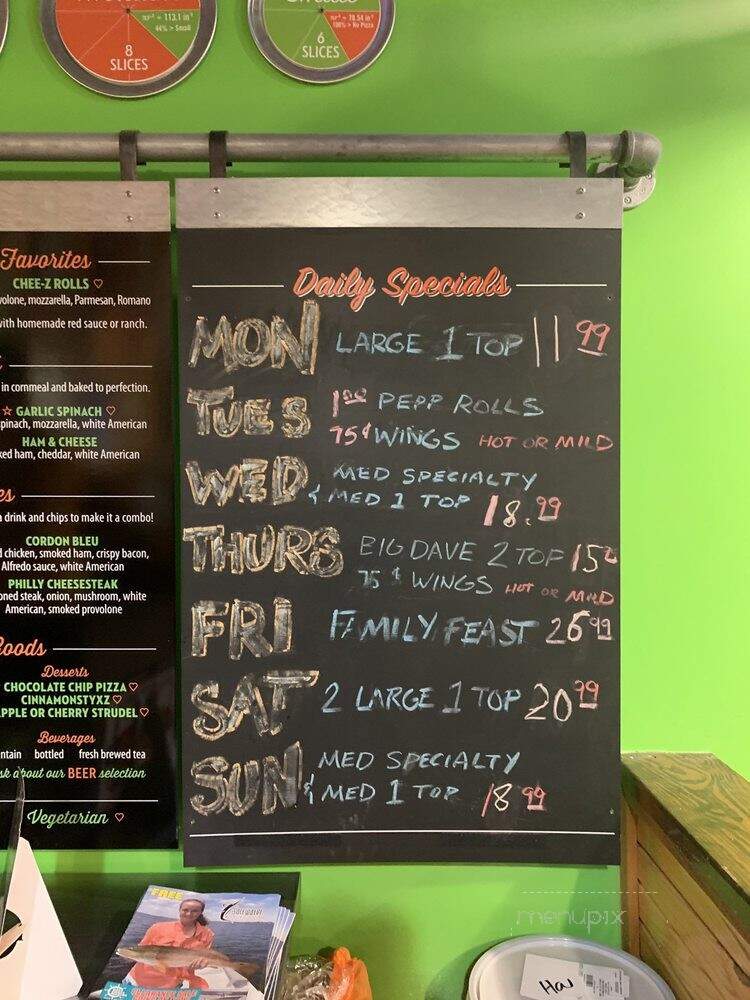 8
SLICES
πr² = 113.1 in²
44% > Small
6
SLICES
πr² = 78.54 in²
100% > No Pizza
Favorites
CHEE-Z ROLLS
mozzarella, Parmesan, Romano
with homemade red sauce or ranch.
in cornmeal and baked to perfection.
GARLIC SPINACH
mozzarella, white American
HAM & CHEESE
ham, cheddar, white American
drink and chips to make it a combo!
CORDON BLEU
chicken, smoked ham, crispy bacon,
Alfredo sauce, white American
PHILLY CHEESESTEAK
steak, onion, mushroom, white
American, smoked provolone
Desserts
CHOCOLATE CHIP PIZZA
CINNAMONSTYXZ
APPLE OR CHERRY STRUDEL
Beverages
bottled fresh brewed tea
about our BEER selection
Vegetarian
Daily Specials
MON LARGE 1 TOP 11 99
TUES PEPP ROLLS
75¢ WINGS HOT OR MILD
WED MED SPECIALTY
& MED 1 TOP 18.99
THURS BIG DAVE 2 TOP
75¢ WINGS HOT OR MILD
FRI FAMILY FEAST 26 99
SAT 2 LARGE 1 TOP 20 99
SUN MED SPECIALTY
& MED 1 TOP 18 99
FREE
menupix